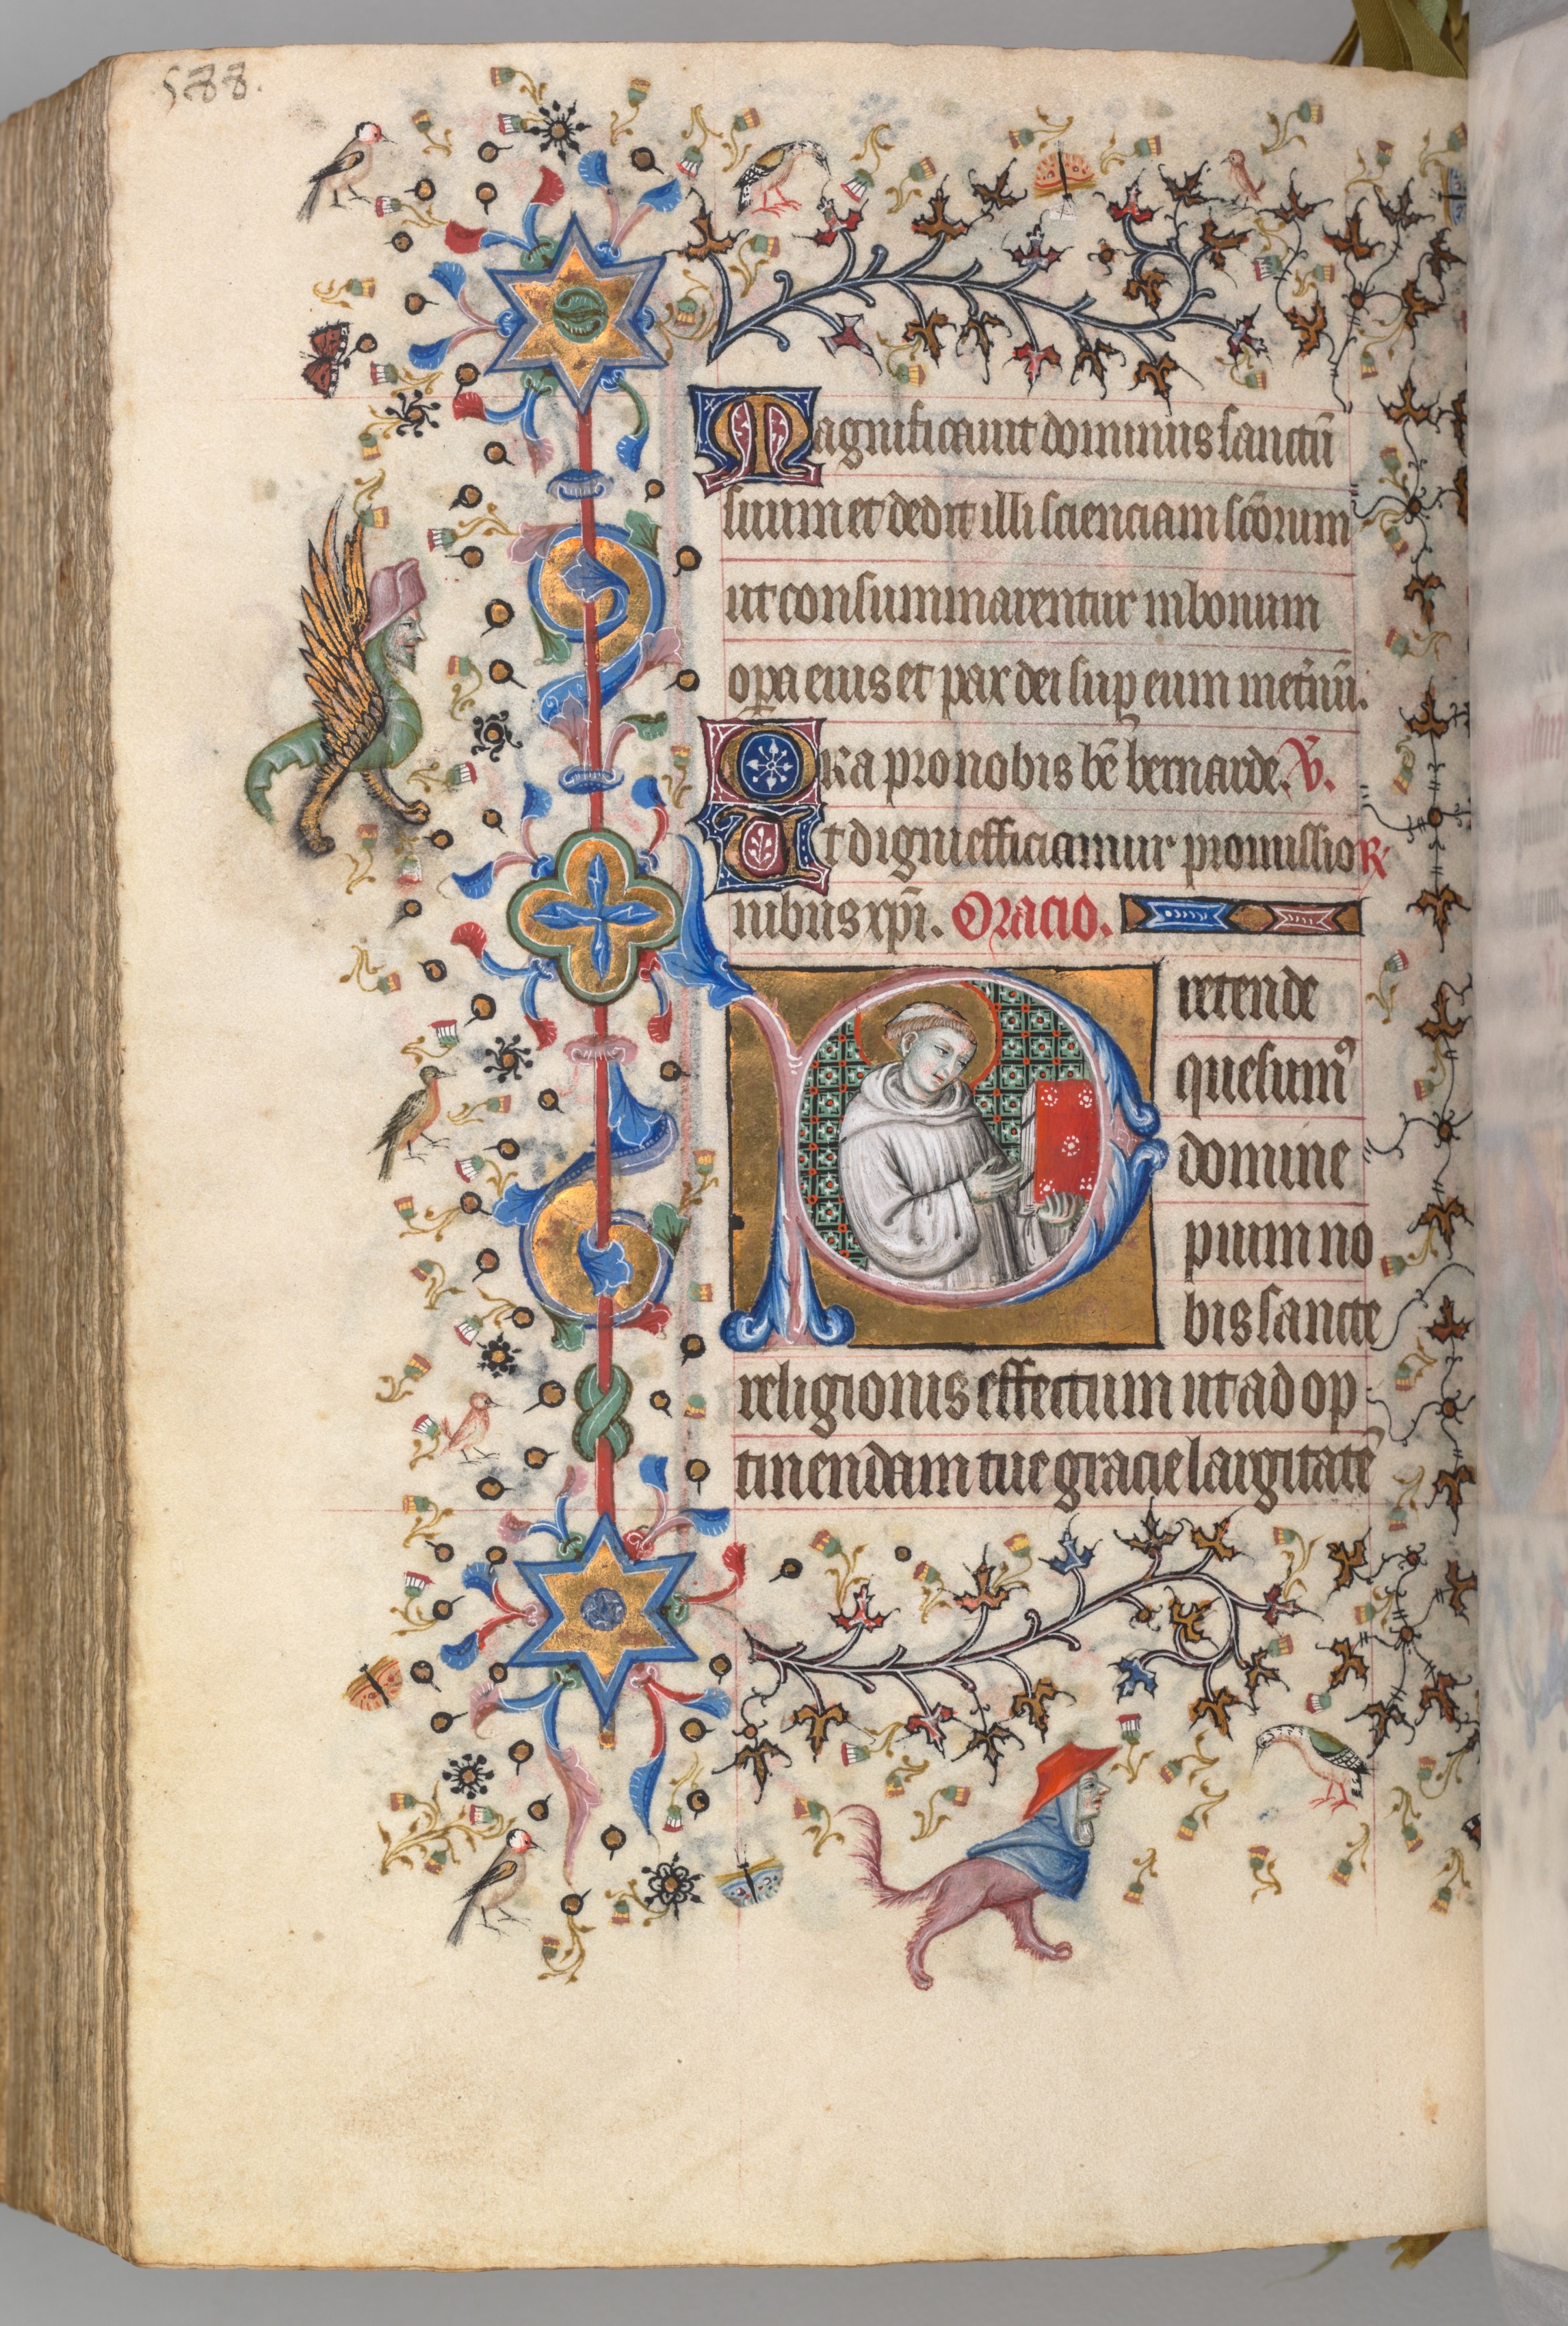 588.
Magnificauit dominus sanctū
suum et dedit illi scienciam scōrum
ut consummarentur in bonum
opa eius et pax dei sup eum in etnū.
Ora pro nobis bē bernarde. V.
Ut digni efficiamur promissio R
nibus xpī. Oracio.
Pretende
quesum⁹
domine
pium no
bis sancte
religionis effectum ut ad op
tinendam tue gracie largitatē